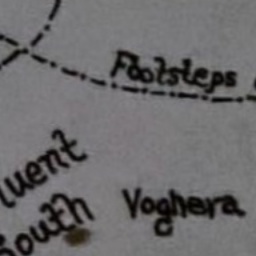 Footsteps
luent
South
Voghera